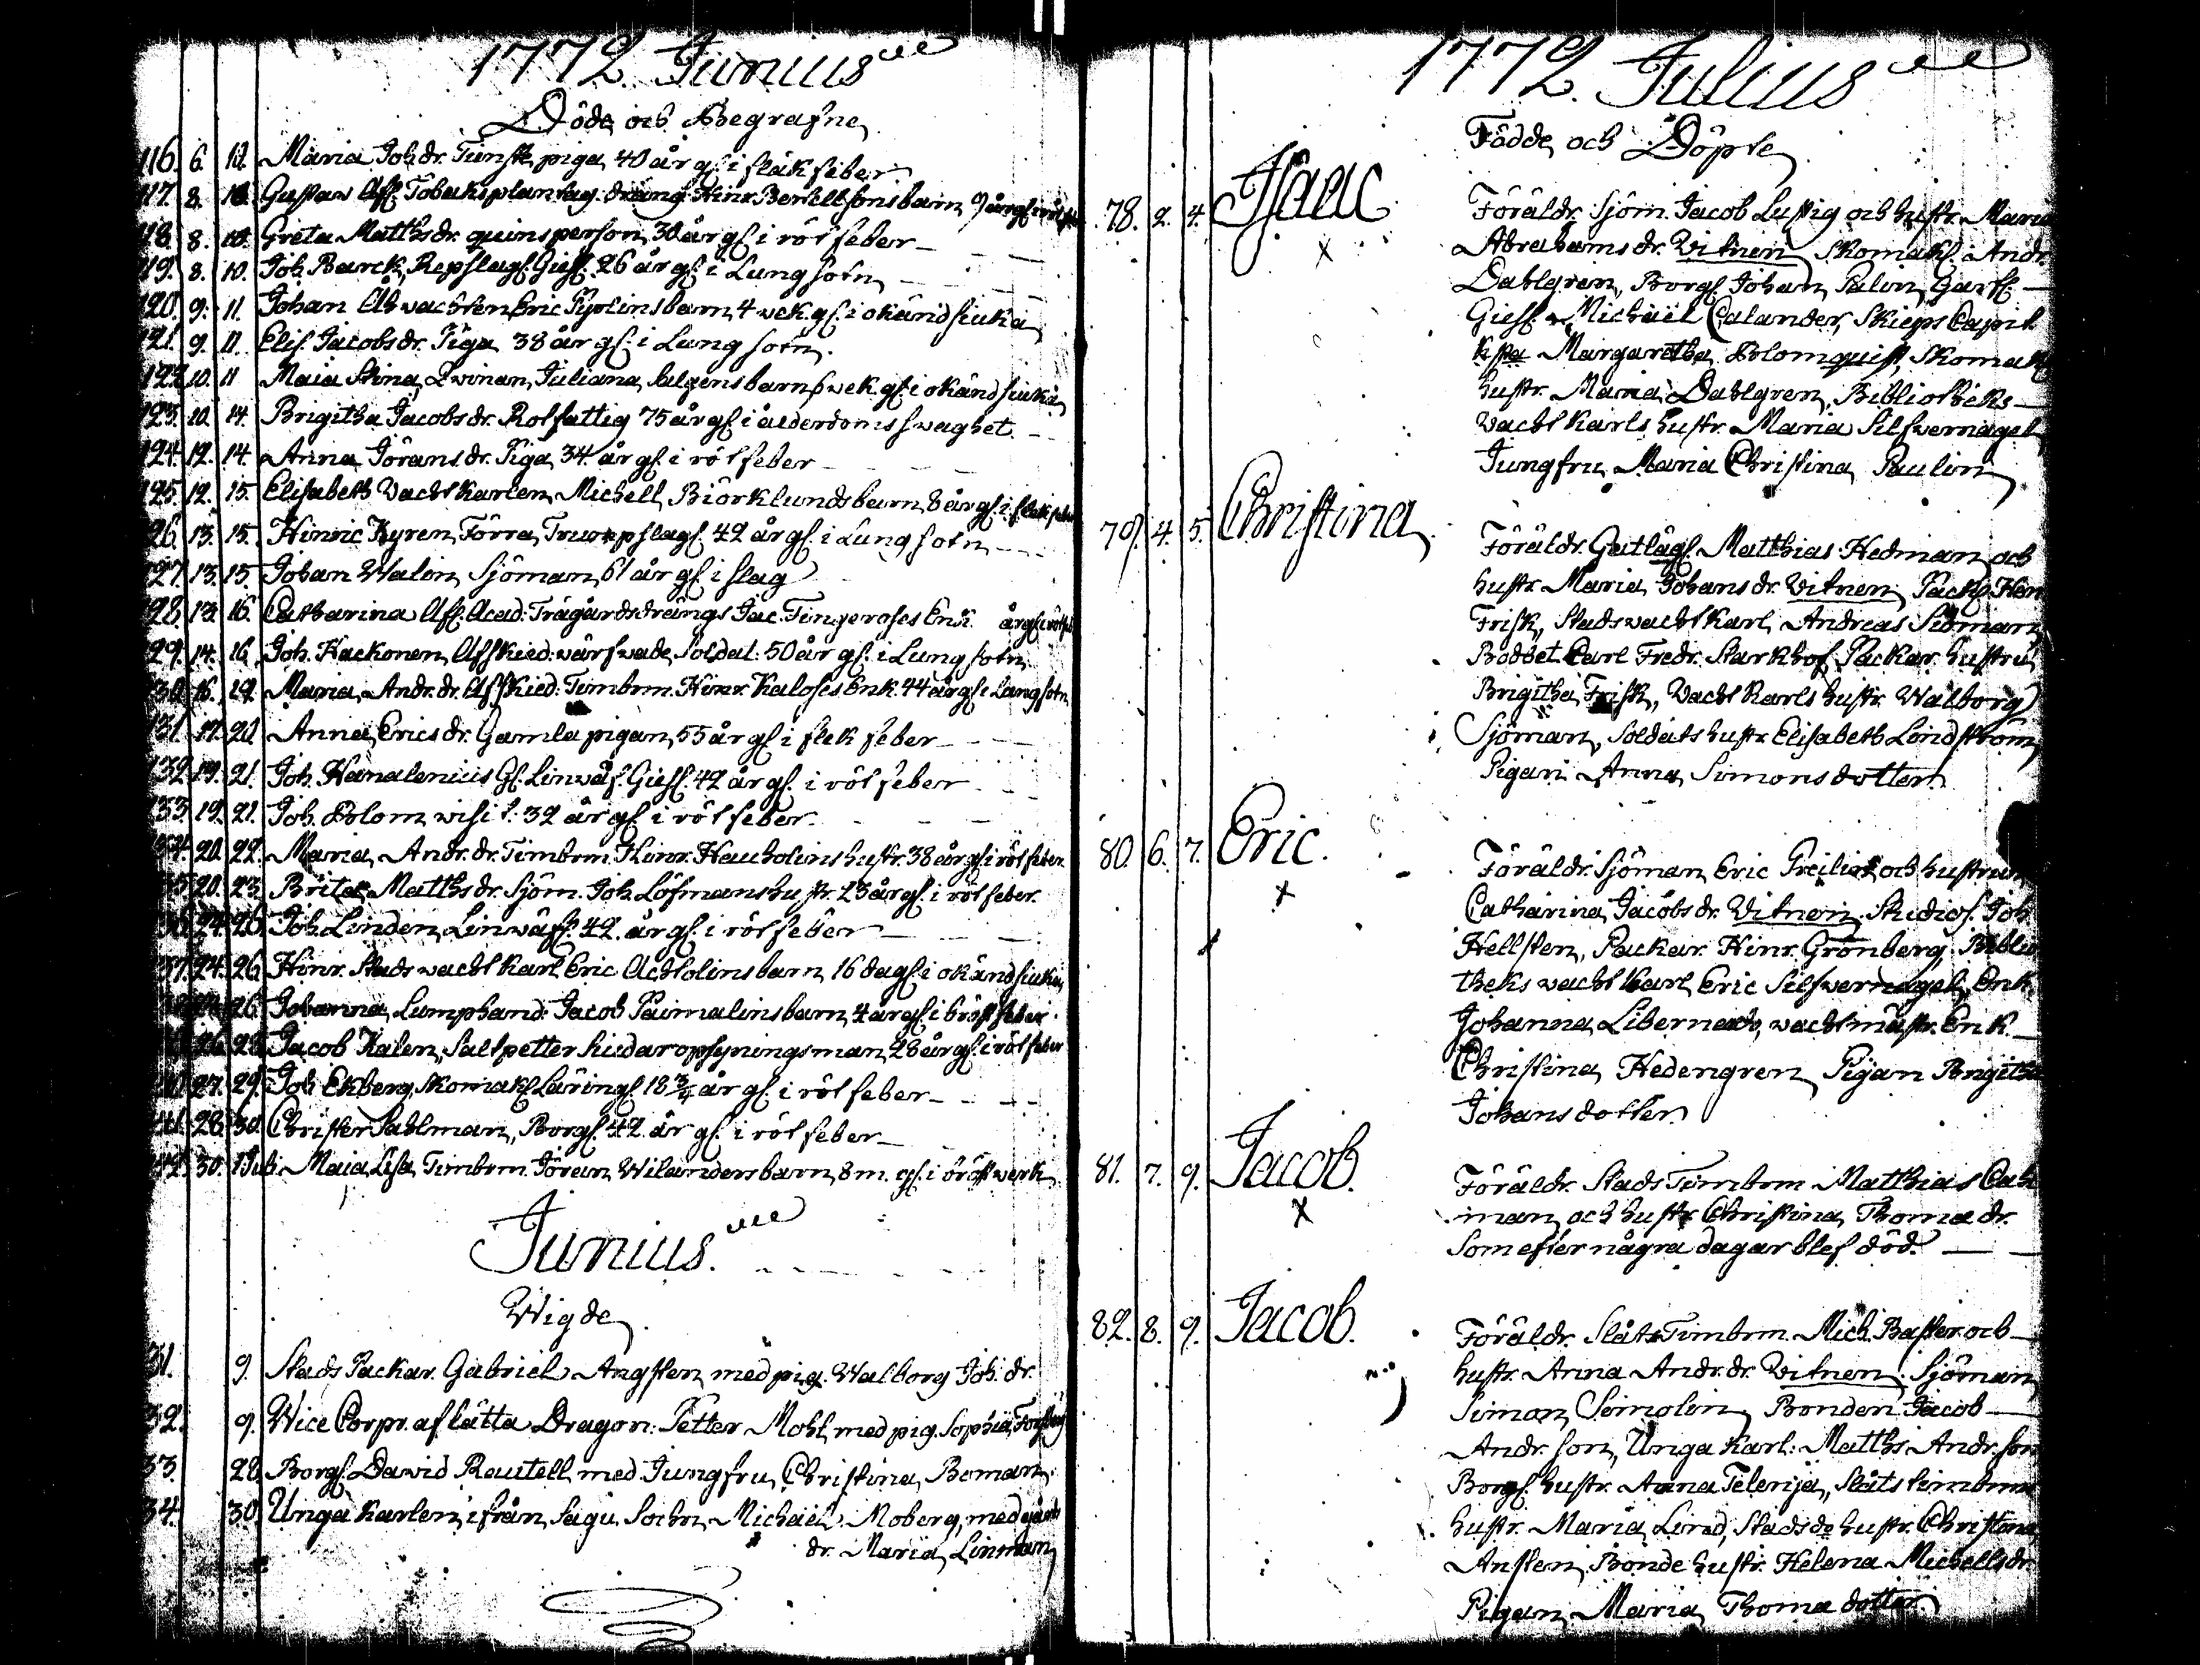 1772 Junius
Döde och Begrafne
116. 6. 12. Maria Joh. dr. Tienste piga, 40 år gl: i fläk feber
117. 8. 10. Gustav Afsk. Tobaksplantag: dräng Hinr. Bertellsons barn, 9 år gl i röt
118. 8. 10. Greta Matths dr. quins person, 30 år gl i röt feber
119. 8. 10. Joh. Barck, Repslag. Giesl. 26 år gl: i Lungsotn
120. 9. 11. Johan Åbwachten Eric Pyolins barn, 4 wek. gl: i okänd siuka
121. 9. 11. Elis. Jacobs dr. Piga 38 år gl: i Lungsotn.
122. 10. 11 Maia Stina, Qvinan, Juliana Salgens barn wek. gl: i okänd siuka
123. 10. 14. Brigitha Jacobs dr. Rotfattig 75 år gl: i ålderdoms swaghet.
124. 12. 14. Anna Jörans dr. Piga 34 år gl: i röt feber
125. 12. 15. Elisabeth Wachtkarlen, Michell Biörklunds barn, 8 år gl: i flek feber
126. 13. 15. Hinric Kyren, Förra, Trumpslag. 42 år gl: i Lungsotn
127. 13. 15. Johan Walin, Sjöman, 61 år gl: i slag
128. 13. 16. Catharina Afsk. Acad: Trägårds drängs Jac. Fingeroses Enk. år gl: i röt feb
129. 14. 16. Joh. Kackonen, Afskied: wärfwade Soldat: 50 år gl: i Lungsotn
130. 16. 19. Maria Andr. dr. Afskied: Timbrm. Hinr. Kaloses Enk. 44 år gl: i Lungsotn
131. 17. 20. Anna Erics dr. Gamla pigan, 55 år gl: i flek feber
132. 19. 21. Joh. Kanalenius Gl. Linwäf. Giesl. 42 år gl: i röt feber
133. 19. 21. Joh. Holom, wisit: 32 år gl: i röt feber.
134. 20. 22. Maria, Andr. dr. Timbrm. Hinr. Hauholins hustr. 38 år gl: i röt feber
135. 20. 23. Brita Matths dr. Sjöm. Joh. Löfmans hustr. 23 år gl: i röt feber.
136. 24. 26. Joh. Linden, Linwäf. 42. år gl: i röt feber
137. 24. 26. Hinr. Stads wachtkarl Eric Achtolins barn, 16 dag. gl: i okänd siuka
26. Johanna, Lumphand: Jacob Paimalins barn, 4 år gl: i bröst feber.
26. 28. Jacob Kalen, Saltpetter siudar opsyningsman, 28 år gl: i röt feber
140. 27. 29. Joh. Ekberg, Skomak. Läring. 18 3/4 år gl: i röt feber
141. 28. 30. Christer Sahlman, Borg. 42 år gl: i röt feber
142. 30. 1 Juli: Maia Lisa Timbrm. Jöran Wilanders barn, 8 m. gl: i bröst werk
Junius
Wigde
31. 9. Stads Packar. Gabriel Angsten, med pig. Walborg Joh. dr.
32. 9. Wice Corpr. af lätta Dragon: Petter Moht, med pig. Sophia Forsberg
33. 28. Borg. David Rautell med Jungfru Christina Boman.
34. 30. Unga karlen, ifrån Sagu Sochn, Michael Moberg, med gårds
dr. Maria Linman
1772. Julius
Födde och Döpte
78. 2. 4. Isaac
Föräldr. Sjöm. Jacob Lustig och hustr. Maria
Abrahams dr. Vitnen, Skomak. Andr.
Dahlgren, Borg. Johan Palin, Garf.
Giesl. Michäel Calander, Skieps Capit.
Margaretha Holomquist, Skomak
hustr. Maria Dahlgren, Bibliotheks
wacht karls hustr. Maria Silfwernagel
Jungfru Maria Christina Paulin
79. 4. 5. Christina
Föräldr. Gatlägg. Matthias Hedman och
hustr. Maria Johans dr. Vitnen, Pack. Hen
Frisk, Stadswacht karl Andreas Siöman
Boddet Carl Fredr. Starkhof, Packar. hustru
Brigitha Frisk, Wacht karls hustr. Walborg
Sjöman, Soldats hustr. Elisabeth Lindström
Pigan Anna Simons dotter
80. 6. 7. Eric.
Föräldr. Sjöman Eric Greilick och hustrun
Catharina Jacobs dr. Vitnen. Studios. Joh.
Hellsten, Packar. Hinr. Grönberg, Biblio
theks wacht karl Eric Silfwernagel, Enk.
Johanna Libernardt, wachtmästr. Enk.
Christina Hedengren, Pigan Brigitha
Johans dotter
81. 7. 9. Jacob.
Föräldr. Stads Timbrm Matthias Cahl
man, och hustr. Christina Thomæ dr.
Som efter några dagar blef död.
82. 8. 9. Jacob.
Föräldr. Slåts Timbrm. Mich. Baster och
hustr. Anna Andr. dr. Vitnen. Sjöman
Simon Simolin, Bonden Jacob
Andr. son, Unga karl: Matths Andr. son
Borg. hustr. Anna Telenja, Slåts timbrm
hustr. Maria Lind, Stads do hustr. Christina
Ansten, Bonde hustr. Helena Michells dr.
Pigan Maria Thomæ dotter.